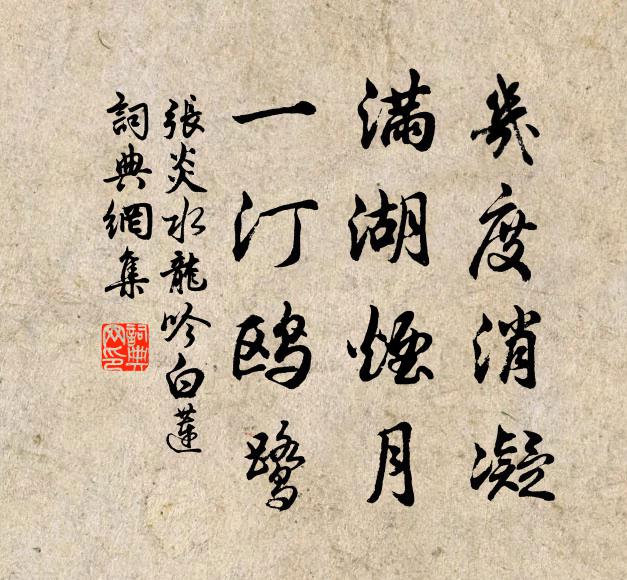 幾度消凝
滿湖煙月
一汀鷗鷺
張炎水龍吟白蓮
詞典網集
詞典网印